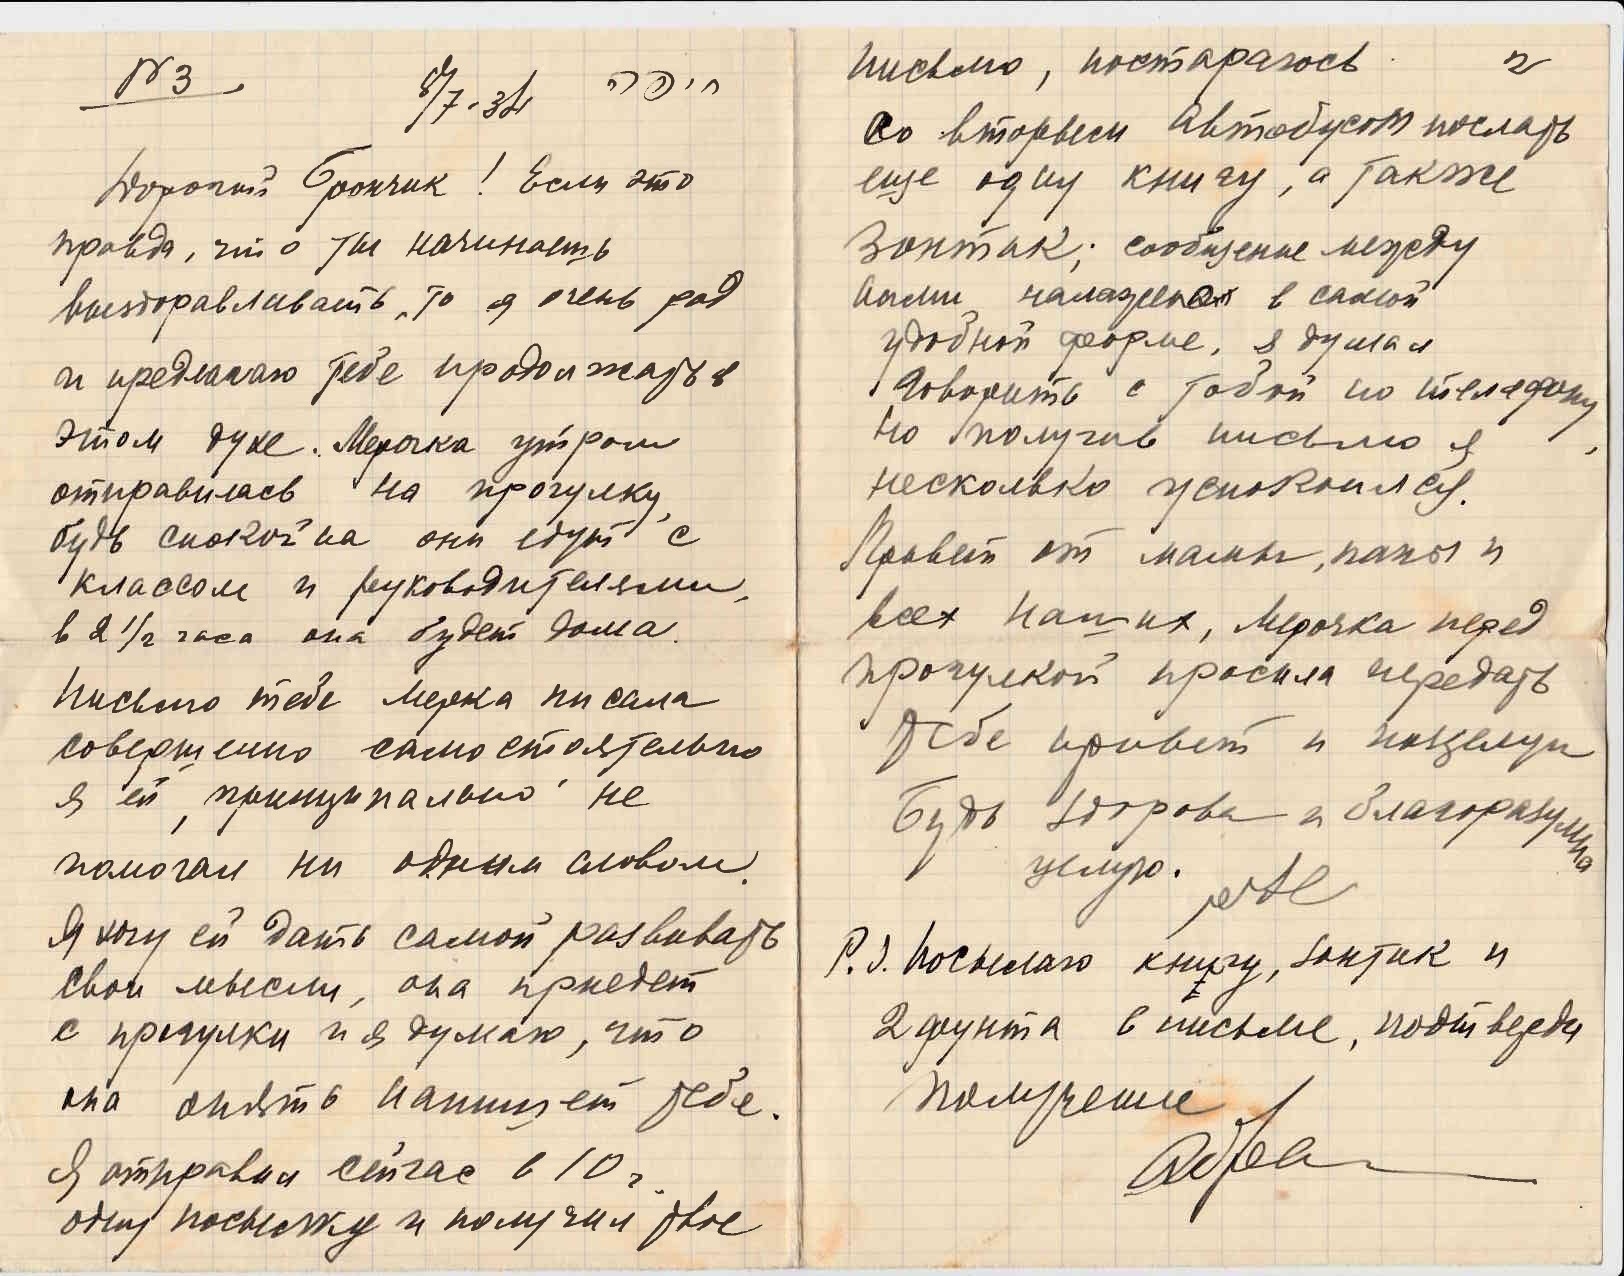 N 3
8/7-34 חיפה
Дорогой Брончик! Если это
правда, что ты начинаешь
выздоравливать, то я очень рад
и предлагаю тебе продолжать в
этом духе. Мерочка утром
отправилась на прогулку,
будь спокойна они едут с
классом и руководителями,
в 2 1/2 часа она будет дома.
Письмо тебе Мерка писала
совершенно самостоятельно
я ей "принципиально" не
помогал ни одним словом.
Я хочу ей дать самой развивать
свои мысли, она приедет
с прогулки и я думаю, что
она опять напишет тебе.
Я отправил сейчас в 10 ч.
одну посылку и получил твое
2
письмо, постараюсь
со вторым автобусом послать
еще одну книгу, а также
Зонтик; сообщение между
нами налажено в самой
удобной форме, я думал
говорить с тобой по телефону,
но получив письмо я
несколько успокоился.
Привет от мамы, папы и
всех наших, Мерочка перед
прогулкой просила передать
тебе привет и поцелуи
Будь здорова и благоразумна
целую.
P.S. Посылаю книгу, зонтик и
2 фунта в письме, подтверди
получение